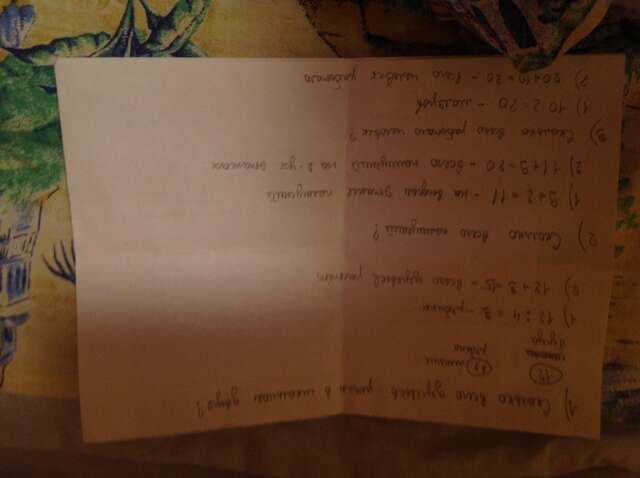 1) Сколько всего деревьев росло в школьном дворе?
12 меньше
рябина
1) 12 : 4 = 3 - рябины
2) 12 + 3 = 15 - всего деревьев
2) Сколько всего помещений?
1) 9 + 2 = 11 - на втором этаже помещений
2) 11 + 9 = 20 - всего помещений на 2-ух этажах
3) Сколько всего работало человек?
1) 10 · 2 = 20 - маляров
2) 20 + 10 = 30 - всего человек работало